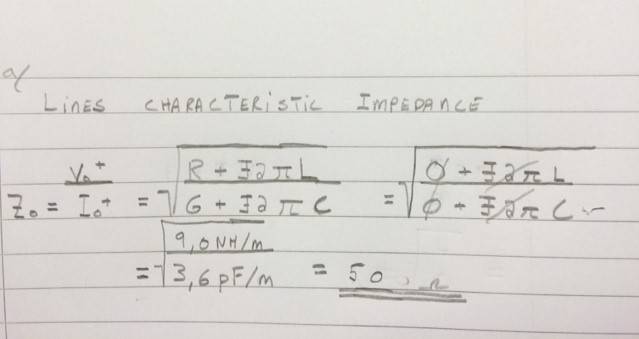 a/
LINES CHARACTERISTIC IMPEDANCE
Z₀ = V₀⁺ / I₀⁺ = √((R + j2πL) / (G + j2πC)) = √((0 + j2πL) / (0 + j2πC))
= √(9,0 NH/m / 3,6 pF/m) = 50 Ω